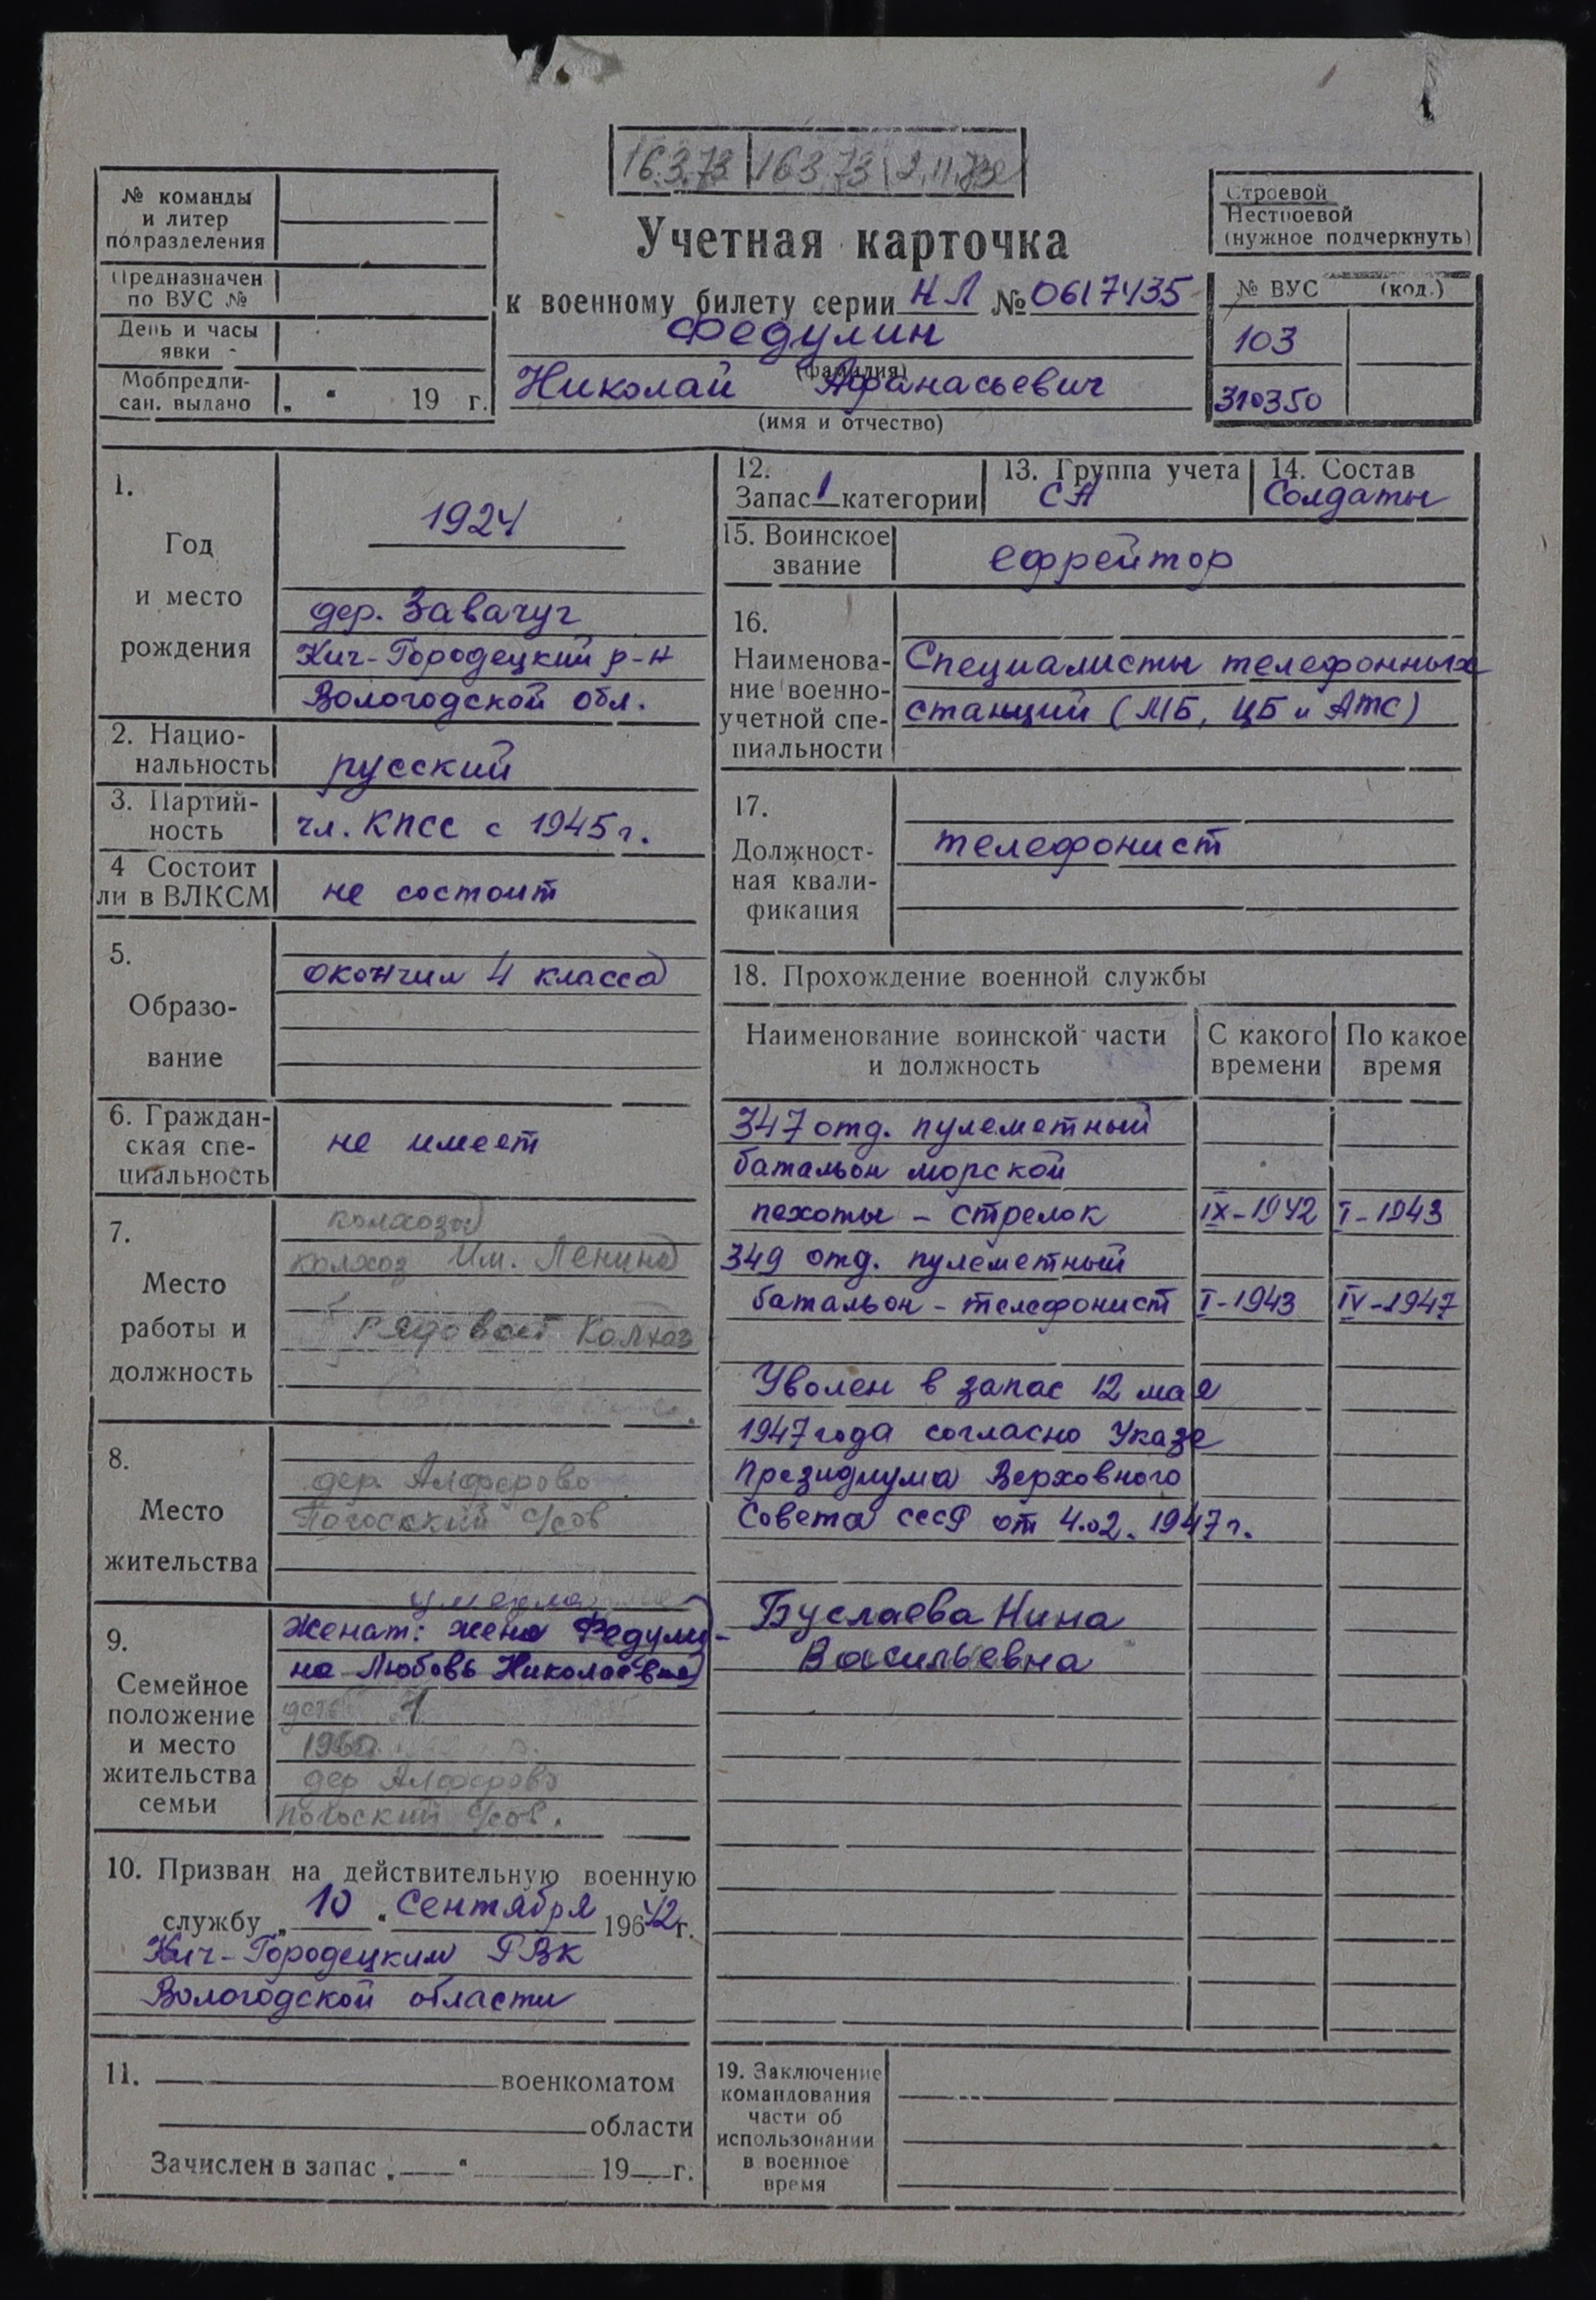 16.3.73 16.3.73 2.11.73
№ команды
и литер
подразделения
Предназначен
по ВУС №
День и часы
явки -
Мобпредпи-
сан. выдано „ " 19 г.
Учетная карточка
к военному билету серии НЛ № 0617435
Федулин
(фамилия)
Николай Афанасьевич
(имя и отчество)
Строевой
Нестроевой
(нужное подчеркнуть)
№ ВУС (код.)
103
310350
1.
Год
и место
рождения
1924
дер. Завачуг
Кич-Городецкий р-н
Вологодской обл.
2. Нацио-
нальность
русский
3. Партий-
ность
чл. КПСС с 1945 г.
4 Состоит
ли в ВЛКСМ
не состоит
5.
Образо-
вание
окончил 4 класса
6. Граждан-
ская спе-
циальность
не имеет
7.
Место
работы и
должность
колхоз Им. Ленина
рядовой Колхоз
8.
Место
жительства
дер. Алферово
Погосский с/сов
9.
Семейное
положение
и место
жительства
семьи
умерла
Женат: жена Федули-
на Любовь Николаевна
1960
дер Алферово
Погоский с/сов.
10. Призван на действительную военную
службу „ 10 " сентября 19642 г.
Кич-Городецким РВК
Вологодской области
11. военкоматом
области
Зачислен в запас „ " 19 г.
12.
Запас 1 категории
13. Группа учета
СА
14. Состав
Солдаты
15. Воинское
звание
ефрейтор
16.
Наименова-
ние военно-
учетной спе-
циальности
Специалисты телефонных
станций (МБ, ЦБ и АТС)
17.
Должност-
ная квали-
фикация
телефонист
18. Прохождение военной службы
Наименование воинской части
и должность
С какого
времени
По какое
время
347 отд. пулеметный
батальон морской
пехоты - стрелок IX-1942 I-1943
349 отд. пулеметный
батальон - телефонист I-1943 IV-1947
Уволен в запас 12 мая
1947 года согласно Указе
Президиума Верховного
Совета СССР от 4.02.1947 г.
Буслаева Нина
Васильевна
19. Заключение
командования
части об
использовании
в военное
время